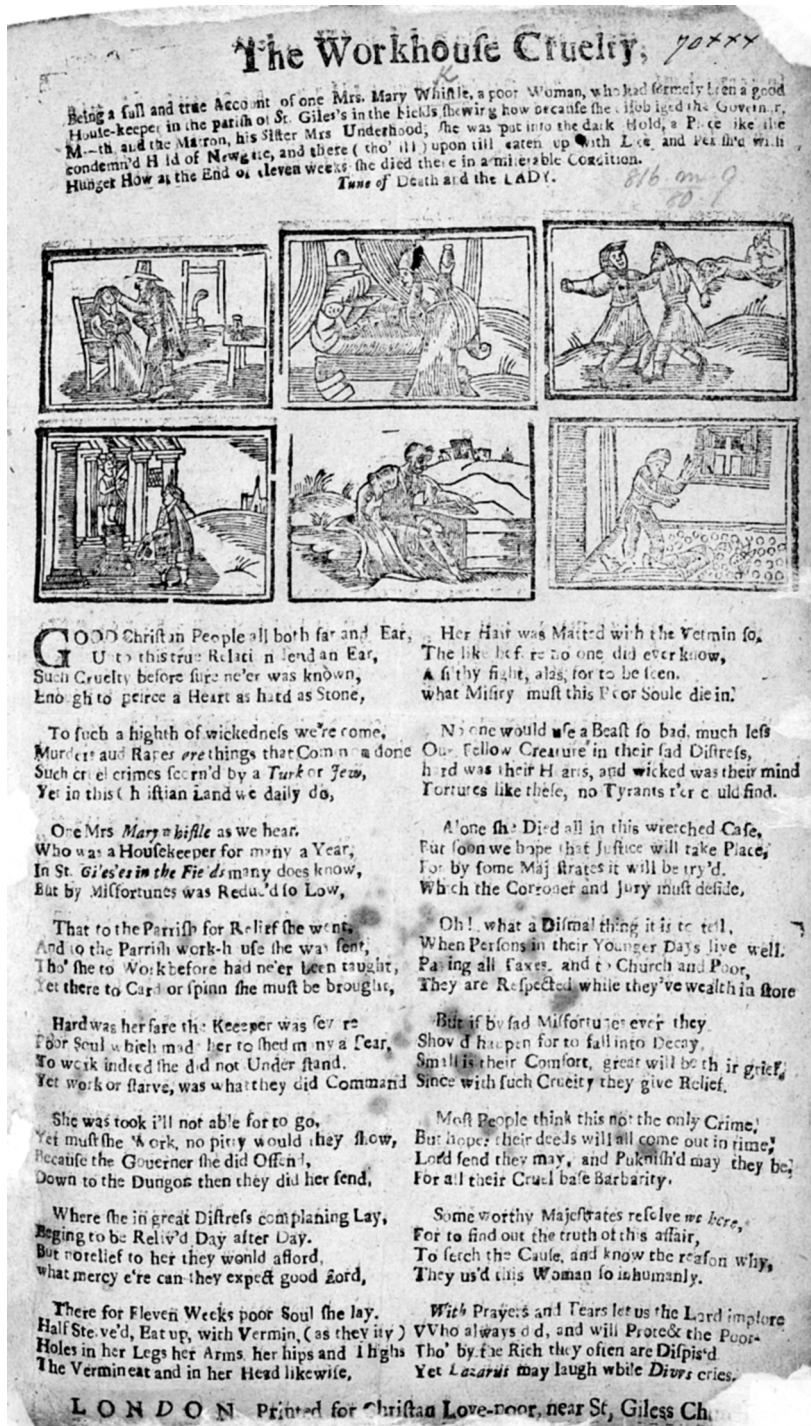 The Workhouſe Cruelty,
70+××
Being a full and true Account of one Mrs. Mary Whiſtle, a poor Woman, who had formely been a good
Houſe-keeper in the pariſh of St. Giles's in the Fields ſhewing how becauſe ſhe diſobliged the Governor,
M—th and the Matron, his Siſter Mrs Underhood; ſhe was put into the dark Hold, a Place like the
condemn'd Hold of Newgate, and there (tho' ill) upon till eaten up with Lice, and Periſh'd with
Hunger How at the End of eleven weeks ſhe died there in a miſerable Condition.
Tune of Death and the LADY.
816 m 9
80
GOOD Chriſtian People all both far and Near,
Unto this true Relation lend an Ear,
Such Cruelty before ſure ne'er was known,
Enough to peirce a Heart as hard as Stone,
To ſuch a highth of wickedneſs we're come,
Murders aud Rapes are things that Common done
Such cruel crimes ſcorn'd by a Turk or Jew,
Yet in this Chriſtian Land we daily do,
One Mrs Mary whiſtle as we hear.
Who was a Houſekeeper for many a Year,
In St. Gieles'es in the Fields many does know,
But by Miſfortunes was Reduc'd ſo Low,
That to the Parriſh for Relief ſhe went,
And to the Parriſh work-houſe ſhe was ſent,
Tho' ſhe to Work before had ne'er been taught,
Yet there to Card or ſpinn ſhe muſt be brought,
Hard was her fare the Keeeper was ſevere
Poor Soul which made her to ſhed many a Tear,
To work indeed ſhe did not Under ſtand.
Yet work or ſtarve, was what they did Command
She was took i'll not able for to go,
Yet muſt ſhe Work, no pitty would they ſhow,
Becauſe the Gouerner ſhe did Offend,
Down to the Dungon then they did her ſend,
Where ſhe in great Diſtreſs complaning Lay,
Beging to be Reliv'd Day after Day.
But no relief to her they wonld afford,
what mercy e're can they expect good Lord,
There for Eleven Weeks poor Soul ſhe lay.
Half Sterve'd, Eat up, with Vermin, (as they ſay)
Holes in her Legs her Arms, her hips and Thighs
The Vermin eat and in her Head likewiſe,
Her Hair was Matted with the Vermin ſo,
The like before no one did ever know,
A filthy ſight, alas, for to be ſeen.
what Miſiry muſt this Poor Soule die in.
No one would uſe a Beaſt ſo bad, much leſs
Our Fellow Creature in their ſad Diſtreſs,
hard was their Hearts, and wicked was their mind
Tortures like theſe, no Tyrants e'er could find.
A'one ſhe Died all in this wretched Caſe,
But ſoon we hope that Juſtice will take Place,
For by ſome Majiſtrates it will be try'd.
Which the Corroner and Jury muſt deſide,
Oh! what a Diſmal thing it is to tell,
When Perſons in their Younger Days live well.
Paying all Taxes, and to Church and Poor,
They are Reſpected while they've wealth in ſtore
But if by ſad Miſfortunes ever they
Shov'd happen for to fall into Decay,
Small is their Comfort, great will be their grief,
Since with ſuch Cruelty they give Relief.
Moſt People think this not the only Crime,
But hopes their deeds will all come out in time,
Lord ſend they may, and Pukniſh'd may they be,
For all their Cruel baſe Barbarity.
Some worthy Majeſtrates reſolve we here,
For to find out the truth of this affair,
To ſerch the Cauſe, and know the reaſon why,
They us'd this Woman ſo inhumanly.
With Prayers and Tears let us the Lord implore
VVho always did, and will Protect the Poor
Tho' by the Rich they often are Diſpis'd
Yet Lazarus may laugh while Dives cries.
LONDON Printed for Chriſtan Love-poor, near St, Gileſs